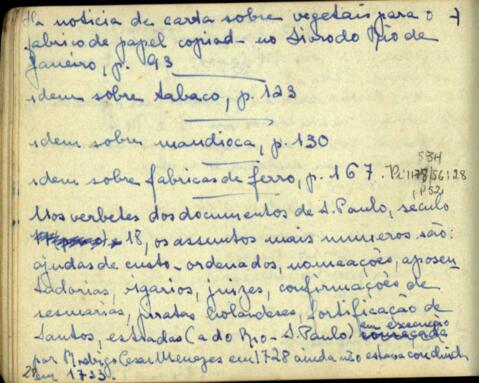 Ha noticia de carta sobre vegetais para o
fabrico de papel copiad no Livro do Rio de
Janeiro, p. 93
idem sobre tabaco, p. 123
idem sobre mandioca, p. 130
idem sobre fabricas de ferro, p. 167.
Nos verbetes dos documentos de S. Paulo, seculo
18, os assuntos mais numeros são:
ajudas de custo - ordenados, nomeações, aposen
tadorias, vigarios, juizes, confirmações de
sesmarias, piratas holandeses, fortificação de
Santos, estradas (a do Rio - S. Paulo) em execução
por Rodrigo Cesar Menezes em 1728 ainda não estava concluid
em 1733.